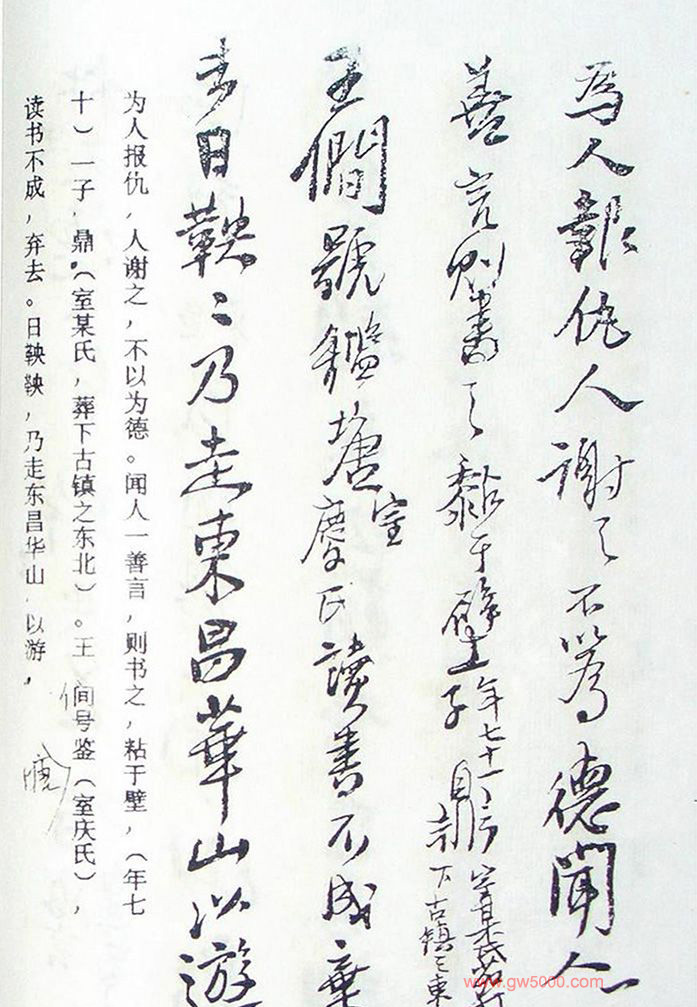 為人報仇人謝之不以為德聞人
善言則書之黏于壁年七十一子鼎室某氏葬下古镇之東
王僩號鑑室慶氏讀書不成棄
去日鞅々乃走東昌華山以遊
为人报仇，人谢之，不以为德。闻人一善言，则书之，粘于壁，（年七
十）一子，鼎。（室某氏，葬下古镇之东北）。王僩号鉴（室庆氏），
读书不成，弃去。日鞅鞅，乃走东昌华山以游，
www.gw5000.com